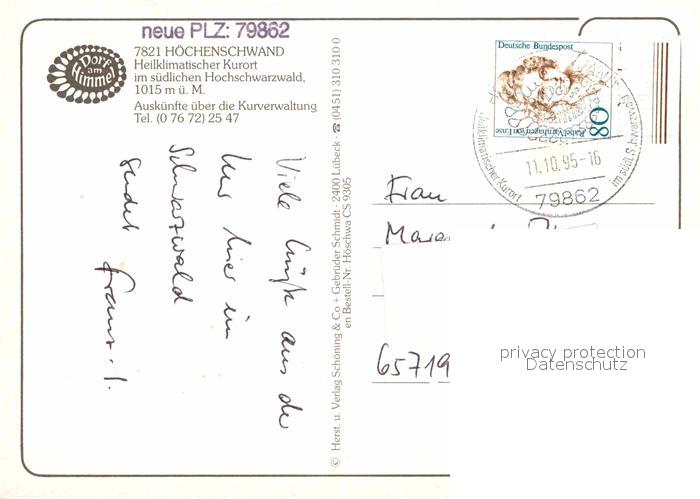 neue PLZ: 79862
Dorf
am
Himmel
7821 HÖCHENSCHWAND
Heilklimatischer Kurort
im südlichen Hochschwarzwald,
1015 m ü. M.
Auskünfte über die Kurverwaltung
Tel. (0 76 72) 25 47
Viele Grüße aus der
Kur hier im
Schwarzwald
sendet
© Herst. u. Verlag Schöning & Co + Gebrüder Schmidt · 2400 Lübeck · ☎ (0451) 310 310 0
en Bestell-Nr. Höschwa CS 9305
Deutsche Bundespost
80
Rahel Varnhagen von Ense
Heilklimatischer Kurort
im südl. Schwarzwald
11.10.95-16
79862
Frau
65719
privacy protection
Datenschutz